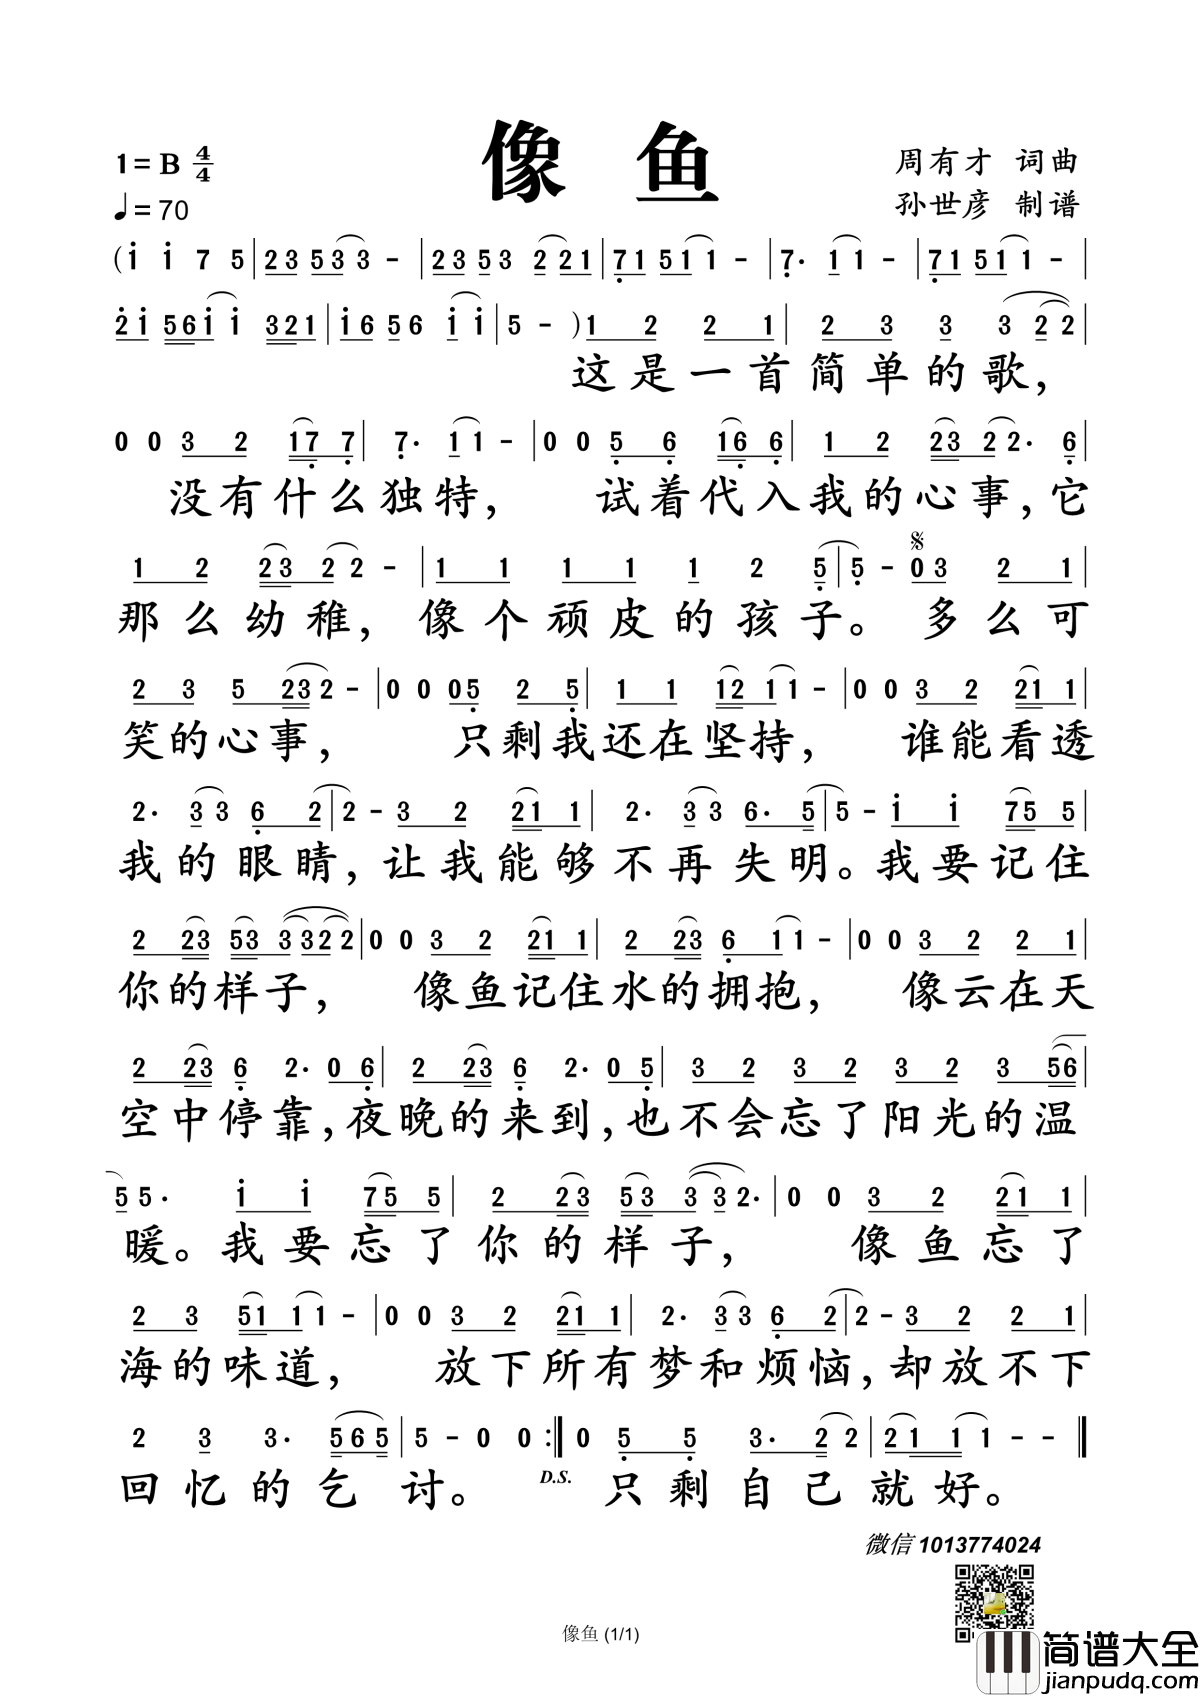 像 鱼
1=B 4/4
♩=70
周有才 词曲
孙世彦 制谱
(i i 7 5|23 533 -|23 53 221|71 511 -|7· 11 -|71 511 -|
2i 56i i 321|i6 56 i i|5 - )1 2 2 1|2 3 3 3 2 2|
这是一首简单的歌，
0 0 3 2 17 7|7· 11 -|0 0 5 6 16 6|1 2 23 2 2· 6|
没有什么独特， 试着代入我的心事，它
1 2 23 2 2 -|1 1 1 1 1 2 5|5 - 03 2 1|
那么幼稚，像个顽皮的孩子。多么可
2 3 5 232 -|0 0 05 2 5|1 1 12 11 -|0 0 3 2 21 1|
笑的心事， 只剩我还在坚持， 谁能看透
2· 33 6 2|2 - 3 2 21 1|2· 33 6· 5|5 - i i 75 5|
我的眼睛，让我能够不再失明。我要记住
2 23 53 3 32 2|0 0 3 2 21 1|2 23 6 11 -|0 0 3 2 2 1|
你的样子， 像鱼记住水的拥抱， 像云在天
2 23 6 2· 0 6|2 23 6 2· 0 5|3 2 3 2 3 2 3 56|
空中停靠，夜晚的来到，也不会忘了阳光的温
5 5· i i 75 5|2 23 53 3 3 2·|0 0 3 2 21 1|
暖。我要忘了你的样子， 像鱼忘了
2 3 51 1 1 -|0 0 3 2 21 1|2· 33 6 2|2 - 3 2 2 1|
海的味道， 放下所有梦和烦恼，却放不下
2 3 3· 565|5 - 0 0 :‖0 5 5 3· 2 2|21 1 1 - -‖
回忆的乞讨。 D.S. 只剩自己就好。
微信 1013774024
像鱼 (1/1)
简谱大全
jianpudq.com